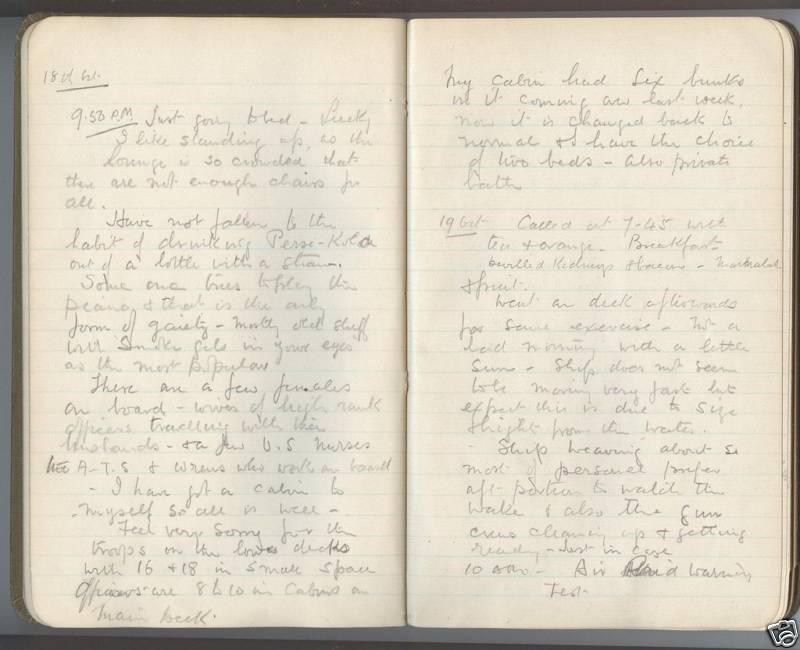 18th Oct.
9.50 P.M. Just going to bed - Lucky
I like standing up, as the
lounge is so crowded that
there are not enough chairs for
all.
Have not fallen to the
habit of drinking Persi-Kola
out of a bottle with a straw.
Some one tries to play the
piano & that is the only
form of gaiety - mostly old stuff
with Smoke gets in your eyes
as the most popular
There are a few females
on board - wives of high rank
officers travelling with their
husbands - & a few U.S Nurses
A-T.S & Wrens who work on board
- I have got a cabin to
myself so all is well -
Feel very sorry for the
troops on the lower decks
with 16 & 18 in small space
Officers are 8 to 10 in Cabins on
Main Deck.
My cabin had Six bunks
in it coming over last week,
now it is changed back to
normal & I have the choice
of two beds - also private
bath
19 Oct Called at 7-45 with
tea & orange - Breakfast
devilled Kidneys & bacon - Marmalade
& fruit.
Went on deck afterwards
for some exercise - Not a
bad morning with a little
Sun - Ship does not seem
to be moving very fast but
expect this is due to size
& height from the water.
- Ship weaving about so
most of personel prefer
aft portion to watch the
wake & also the gun
crews cleaning up & getting
ready - just in case
10 Air Raid warning
Test.
ebY